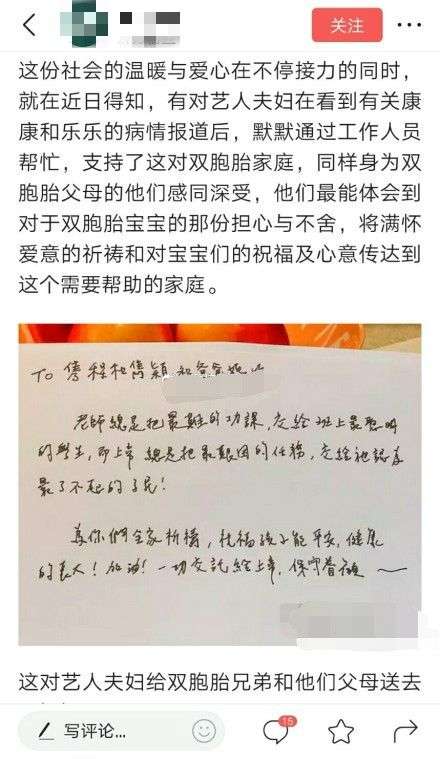 关注
这份社会的温暖与爱心在不停接力的同时，
就在近日得知，有对艺人夫妇在看到有关康
康和乐乐的病情报道后，默默通过工作人员
帮忙，支持了这对双胞胎家庭，同样身为双
胞胎父母的他们感同深受，他们最能体会到
对于双胞胎宝宝的那份担心与不舍，将满怀
爱意的祈祷和对宝宝们的祝福及心意传达到
这个需要帮助的家庭。
TO 雋程和雋穎和爸爸媽
老師總是把最難的功課，交給班上最聰明
的學生，而上帝總是把最艱困的任務，交給祂認為
最了不起的子民！
為你們全家祈禱，祝福孩子能平安，健康
的長大！加油！一切交託給上帝，保守看顧
这对艺人夫妇给双胞胎兄弟和他们父母送去
写评论...
15